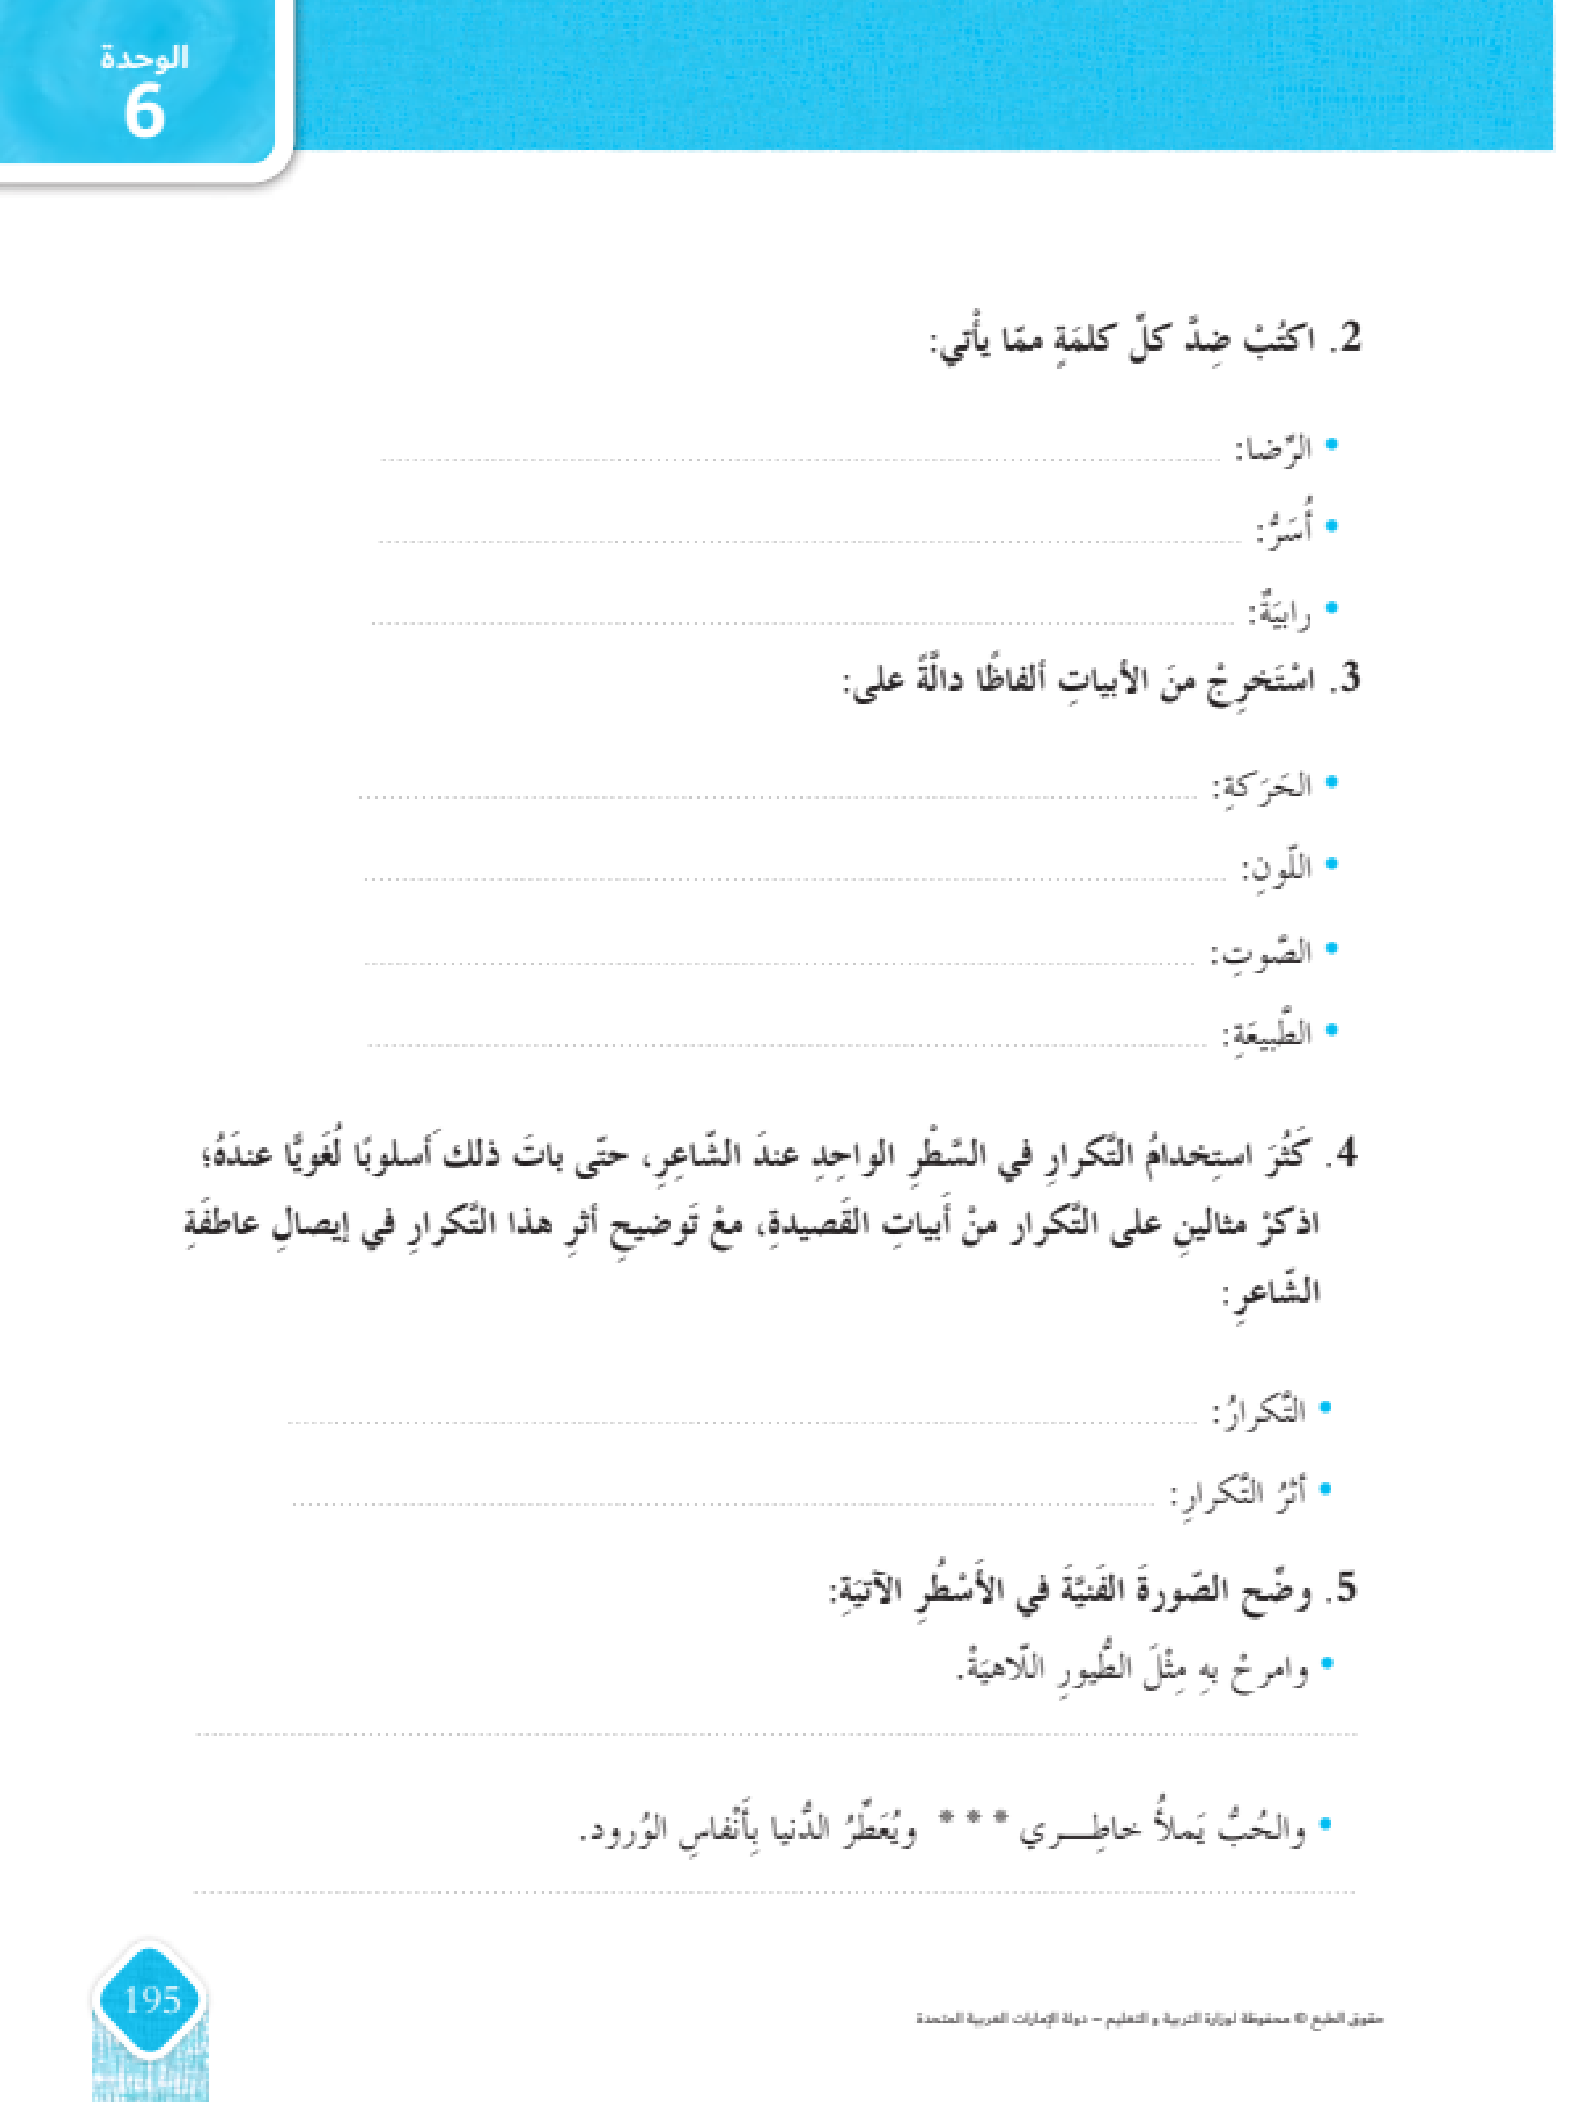 الوحدة
6
2. اكتُبْ ضِدَّ كلِّ كلمَةٍ ممّا يأْتي:
• الرّضا:
• أُسَرُّ:
• رابيَةٌ:
3. اسْتَخرِجْ منَ الأبياتِ ألفاظًا دالَّةً على:
• الحَرَكةِ:
• اللّونِ:
• الصَّوتِ:
• الطَّبيعَةِ:
4. كَثُرَ استِخدامُ التَّكرارِ في السَّطْرِ الواحِدِ عندَ الشّاعِرِ، حتّى باتَ ذلك أَسلوبًا لُغَويًّا عندَهُ؛
اذكرْ مثالينِ على التَّكرار منْ أَبياتِ القَصيدةِ، معْ تَوضيحِ أثرِ هذا التَّكرارِ في إيصالِ عاطفَةِ
الشّاعرِ:
• التَّكرارُ:
• أثرُ التَّكرارِ:
5. وضّح الصّورةَ الفَنيَّةَ في الأَسْطُرِ الآتيَةِ:
• وامرحْ بهِ مِثْلَ الطُّيورِ اللّاهيَةْ.
• والحُبُّ يَملأُ خاطِـــري * * * ويُعَطِّرُ الدُّنيا بِأَنْفاسِ الوُرود.
195
حقوق الطبع © محفوظة لوزارة التربية و التعليم – دولة الإمارات العربية المتحدة